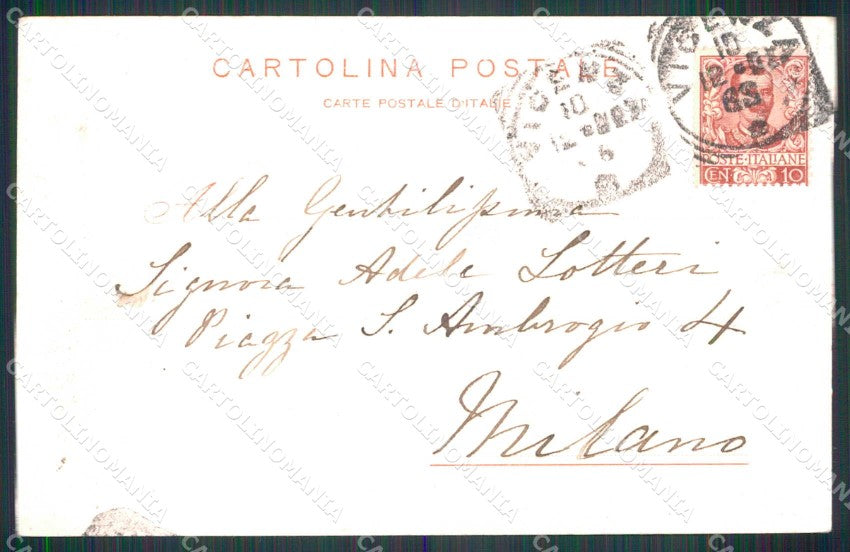 CARTOLINA POSTALE
CARTE POSTALE D'ITALIE
POSTE·ITALIANE
CEN 10
Alla Gentilissima
Signora Adele Lotteri
Piazza S. Ambrogio 4
Milano
CARTOLINOMANIA